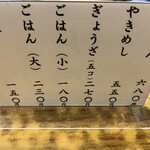 やきめし 六八〇
五五〇
ぎょうざ(五コ)二七〇
ごはん(小) 一八〇
ごはん(大) 二三〇
一五〇